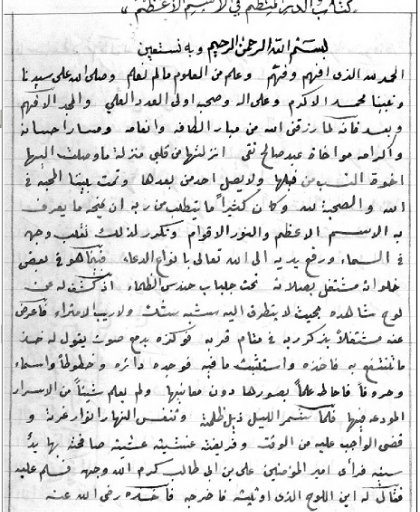 كتاب الدر المنتظم في الاسم الاعظم
بسم الله الرحمن الرحيم وبه نستعين
الحمد لله الذى افهم وفهّم وعلم من العلوم مالم نعلم وصلى الله على سيدنا
ونبينا محمد الاكرم وعلى اله وصحبه اولى القدر العلي والمجد الافخم
وبعد فانه لما رزقنى الله من مبار الطافه وانعامه ومسار احسانه
واكرامه مواخاة عبد صالح تقى انزلتها من قلبى منزلة ما وصلت اليها
اخوة النسب من قبلها ولا يصل احد من بعدها وتمت بيننا المحبه فى
الله والصحبة لله وكان كثيراً ما يتطلب من ربه ان يمنحه ما يعرف
به الاسم الاعظم والنور الاقوام وتكرر لذلك تقلب وجهه
فى السماء ورفع يديه الى الله تعالى بانواع الدعاء فبينما هو فى بعض
خلواته مشتغل بصلاته تحت جلباب حندس الظلماء اذ كشف له من
لوح شاهده بحيث لا يتطرق اليه سنة ستات ولا ريبة لامتراء فاعرض
عنه مشتغلاً بذكر ربه فى مقام قربه فوكزه بدع صوت يقول له خذ
ما تنتفع به فاخذه واستثبت ما فيه فوجده دائرة وخطوطاً واسماء
وحروفاً فاحاط علماً بصورها دون معانيها ولم يعلم شيئاً من الاسرار
المودعه فيها فلما شمر الليل ذيل ظلمته وتنفس النهار انوار غرته و
قضى الواجب عليه من الوقت وفريضته غشيته غشية صافحته بها يد
سنة فرأى امير المؤمنين على بن ابى طالب كرم الله وجهه فسلم عليه
فقال له اين اللوح الذى اوتيته فاخرجه فاخذه رضى الله عنه